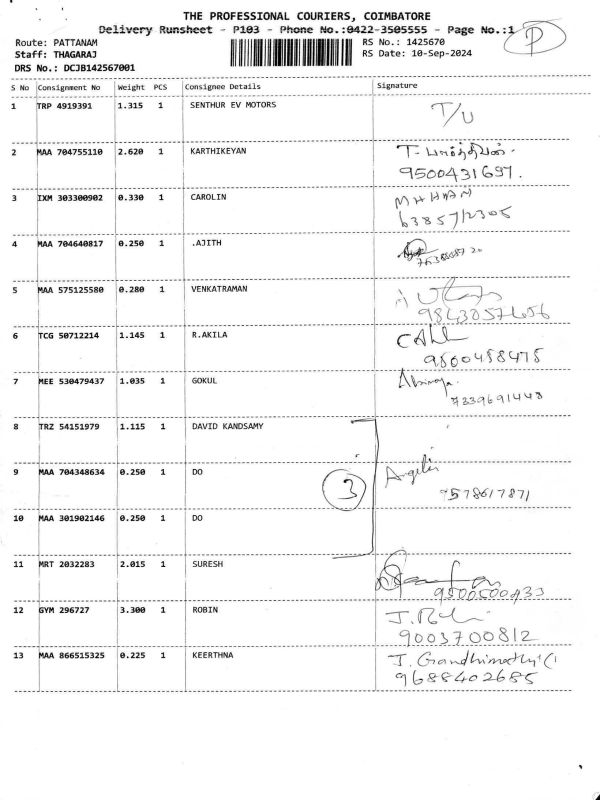 THE PROFESSIONAL COURIERS, COIMBATORE
Delivery Runsheet - P103 - Phone No.:0422-3505555 - Page No.:1 P
Route: PATTANAM RS No.: 1425670
Staff: THAGARAJ RS Date: 10-Sep-2024
DRS No.: DCJB142567001
S No Consignment No Weight PCS Consignee Details Signature
1 TRP 4919391 1.315 1 SENTHUR EV MOTORS T/U
2 MAA 704755110 2.620 1 KARTHIKEYAN
9500431697.
3 IXM 303300902 0.330 1 CAROLIN
4 MAA 704640817 0.250 1 .AJITH
5 MAA 575125580 0.280 1 VENKATRAMAN
9843057656
6 TCG 50712214 1.145 1 R.AKILA
9500488475
7 MEE 530479437 1.035 1 GOKUL
7339691448
8 TRZ 54151979 1.115 1 DAVID KANDSAMY
9 MAA 704348634 0.250 1 DO 3
9578617871
10 MAA 301902146 0.250 1 DO
11 MRT 2032283 2.015 1 SURESH
9500500433
12 GYM 296727 3.300 1 ROBIN
9003700812
13 MAA 866515325 0.225 1 KEERTHNA J. Gandhimathi
9688402685